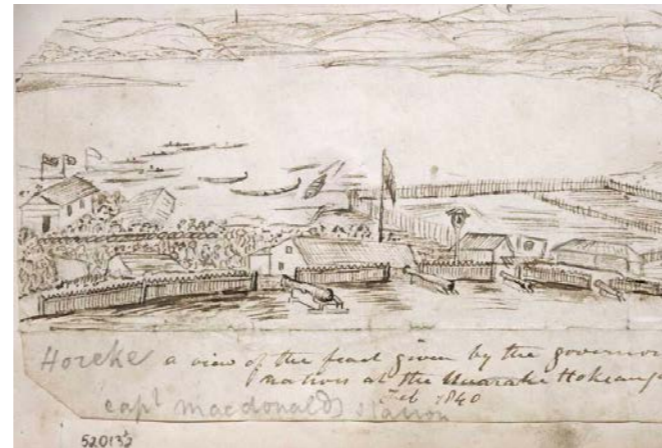 Horeke a view of the feast given by the governor
natives at the Huarake Hokeang
Feb 1840
capt macdonalds station
52013½